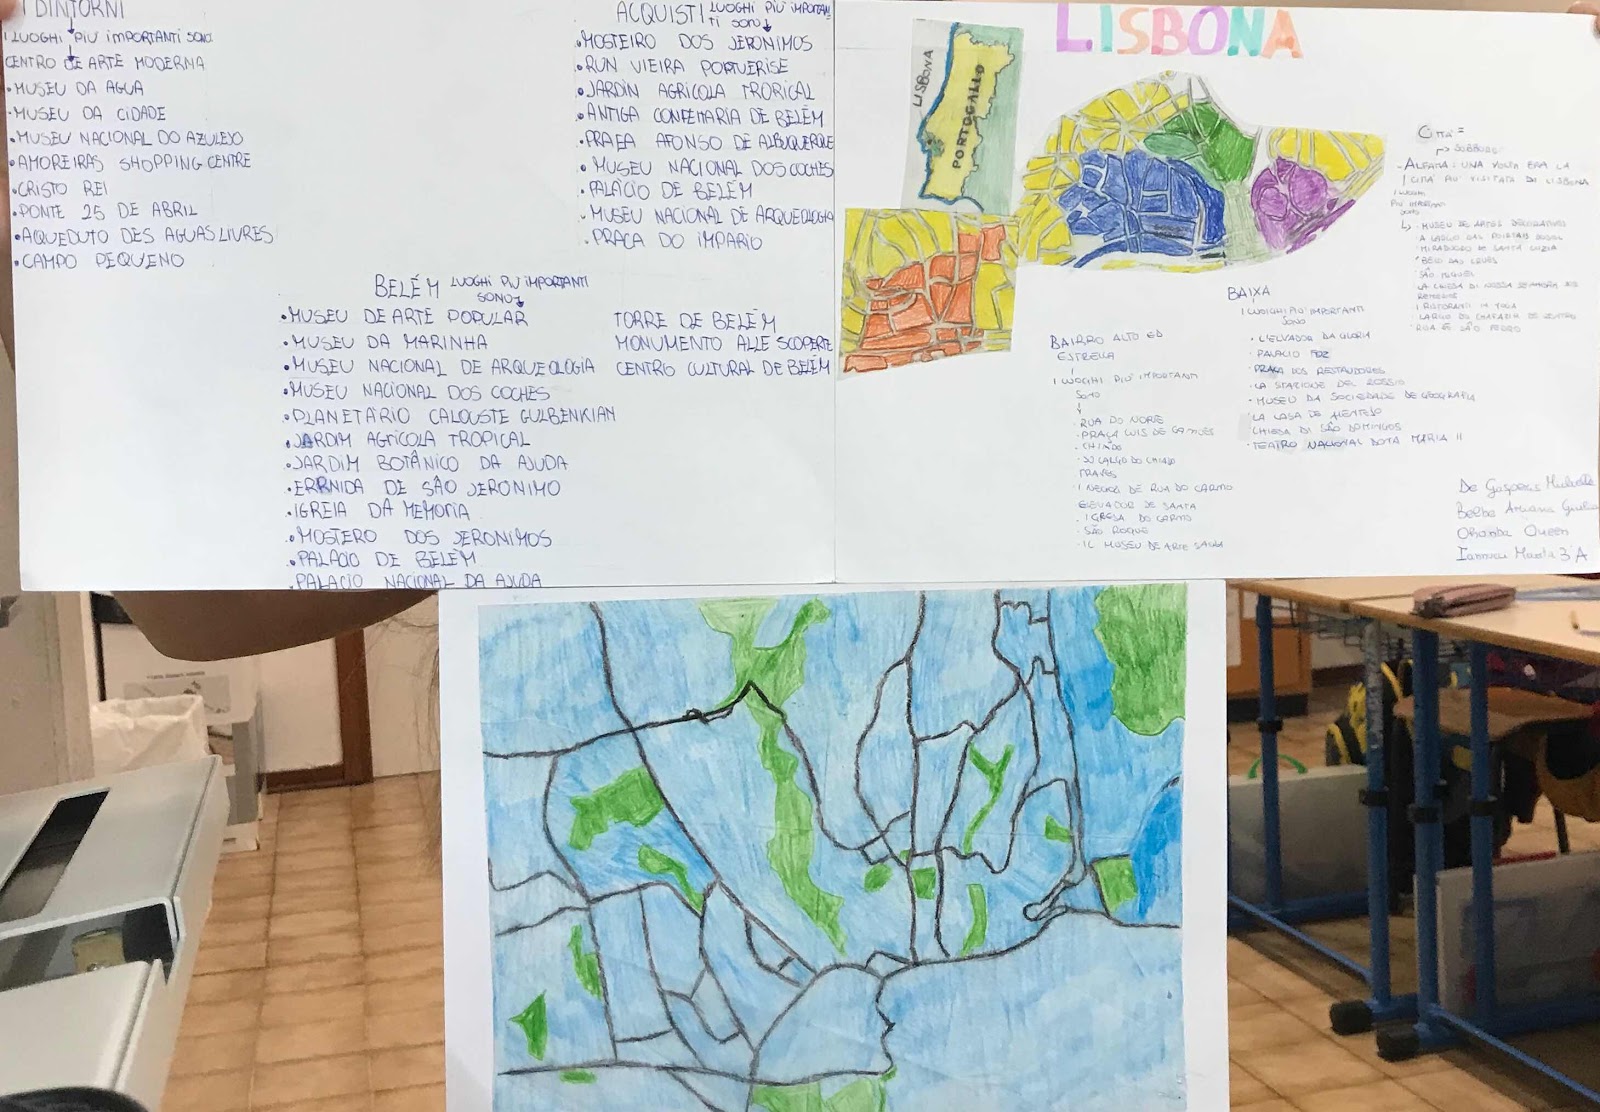 I DINTORNI
I LUOGHI PIÙ IMPORTANTI SONO
CENTRO DE ARTE MODERNA
• MUSEU DA AGUA
• MUSEU DA CIDADE
• MUSEU NACIONAL DO AZULEJO
• AMOREIRAS SHOPPING CENTRE
• CRISTO REI
• PONTE 25 DE ABRIL
• AQUEDUTO DES AGUAS LIVRES
• CAMPO PEQUENO
BELÉM LUOGHI PIÙ IMPORTANTI
SONO
• MUSEU DE ARTE POPULAR
• MUSEU DA MARINHA
• MUSEU NACIONAL DE ARQUEOLOGIA
• MUSEU NACIONAL DOS COCHES
• PLANETÁRIO CALOUSTE GULBENKIAN
• JARDIM AGRICOLA TROPICAL
• JARDIM BOTÂNICO DA AJUDA
• ERRNIDA DE SÂO JERONIMO
• IGREIA DA MEMORIA
• MOSTERO DOS JERONIMOS
• PALACIO DE BELÉM
• PALACIO NACIONAL DA AJUDA
TORRE DE BELÉM
MONUMENTO ALLE SCOPERTE
CENTRO CULTURAL DE BELÉM
ACQUISTI LUOGHI PIÙ IMPORTAN
TI SONO
• MOSTEIRO DOS JERONIMOS
• RUN VIEIRA PORTUERISE
• JARDIN AGRICOLA TRORICAL
• ANTIGA CONFEMARIA DE BELÉM
• PRAFA AFONSO DE ALBUQUERQUE
• MUSEU NACIONAL DOS COCHES
• PALÁCIO DE BELÉM
• MUSEU NACIONAL DE ARQUEOLOGIA
• PRACA DO IMPARIO
LISBONA
LISBONA
PORTOGALLO
CITTÀ =
ALFAMA: UNA VOLTA ERA LA
CITTÀ PIÙ VISITATA DI LISBONA
I LUOGHI
PIÙ IMPORTANTI
SONO
• MUSEU DE ARTES DECORATIVAS
MIRADOURO DE SANTA LUZIA
SÃO MIGUEL
LA CHIESA DI NOSSA
I RISTORANTI IN
LARGO DO CHAFARIZ DE DENTRO
RUA DE SÃO PEDRO
BAIXA
I LUOGHI PIÙ IMPORTANTI
SONO
• L'ELVADOR DA GLORIA
• PALACIO FOZ
• PRAÇA DOS RESTAUADORES
• LA STAZIONE DEL ROSSIO
• MUSEU DA SOCIEDADE DE GEOGRAFIA
LA CASA DE ALENTEJO
CHIESA DI SÃO DOMINGOS
• TEATRO NACIONAL DOTA MARIA II
BAIRRO ALTO ED
ESTRELLA
I LUOGHI PIÙ IMPORTANTI
SONO
• RUA DO NORE
• PRAÇA LUIS DE CAMÕES
• CHIADO
LARGO DO CHIADO
• I NEGOZI DE RUA DO CARMO
ELEVADOR DE SANTA
• IGRESA DO CARMO
• SÃO ROQUE
• IL MUSEU DE ARTE SACRA
De Gasperis
Ohamba Queen
3ªA